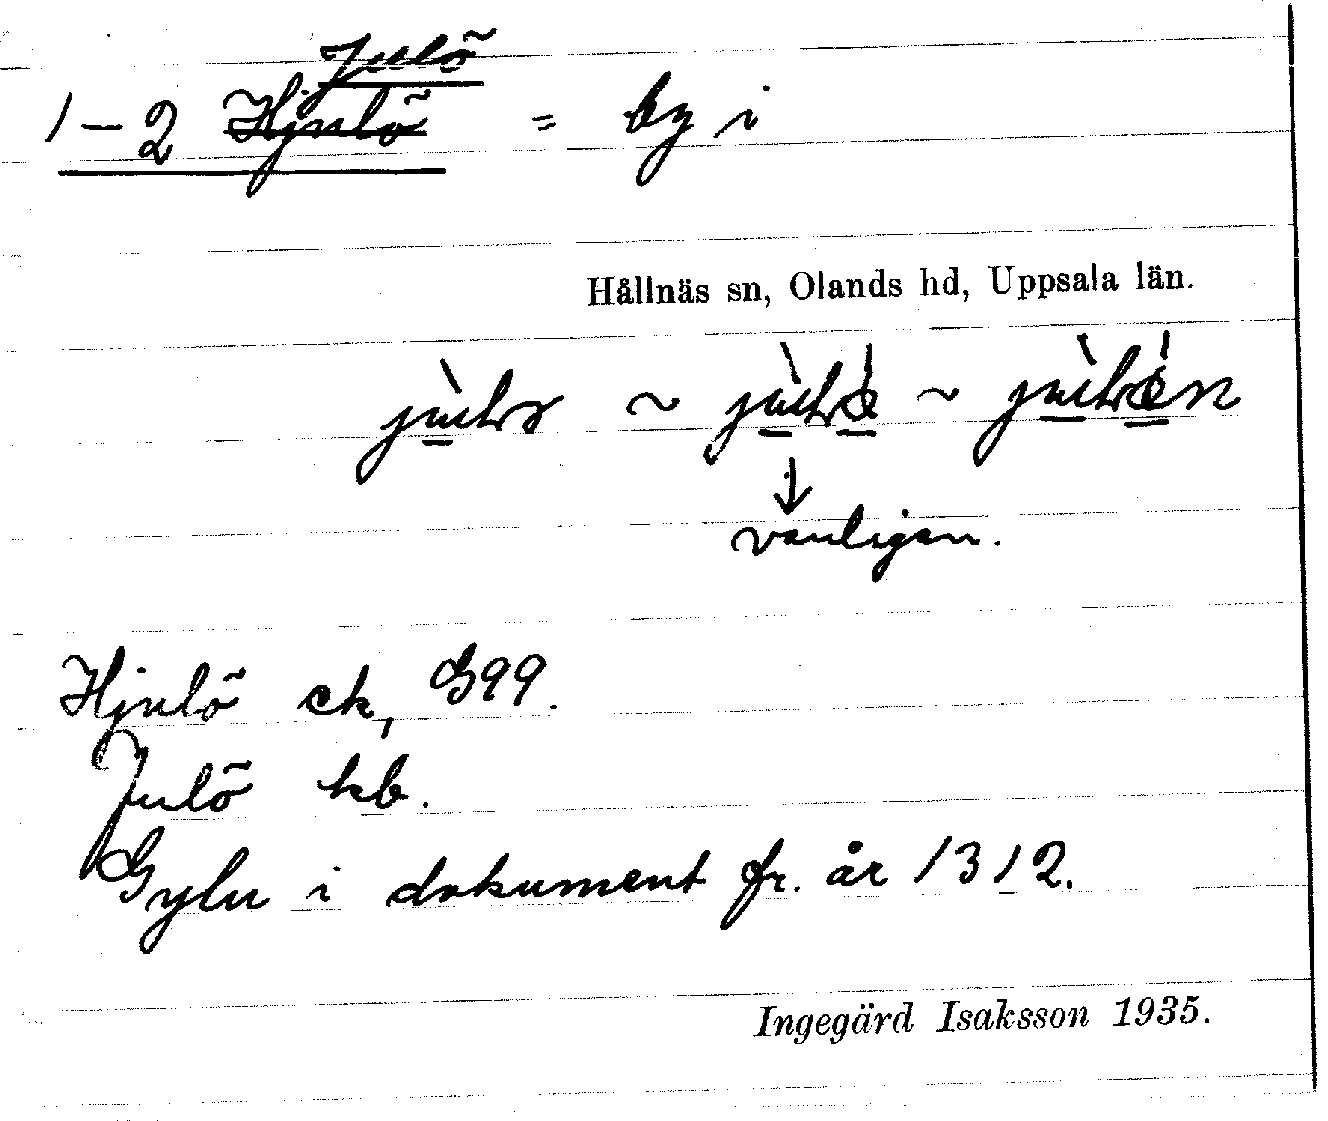 Julö
1-2 Hjulö = by i
Hållnäs sn, Olands hd, Uppsala län.
~ ~
vanligen.
Hjulö ek, G99.
Julö kb.
Gylu i dokument fr. år 1312.
Ingegärd Isaksson 1935.